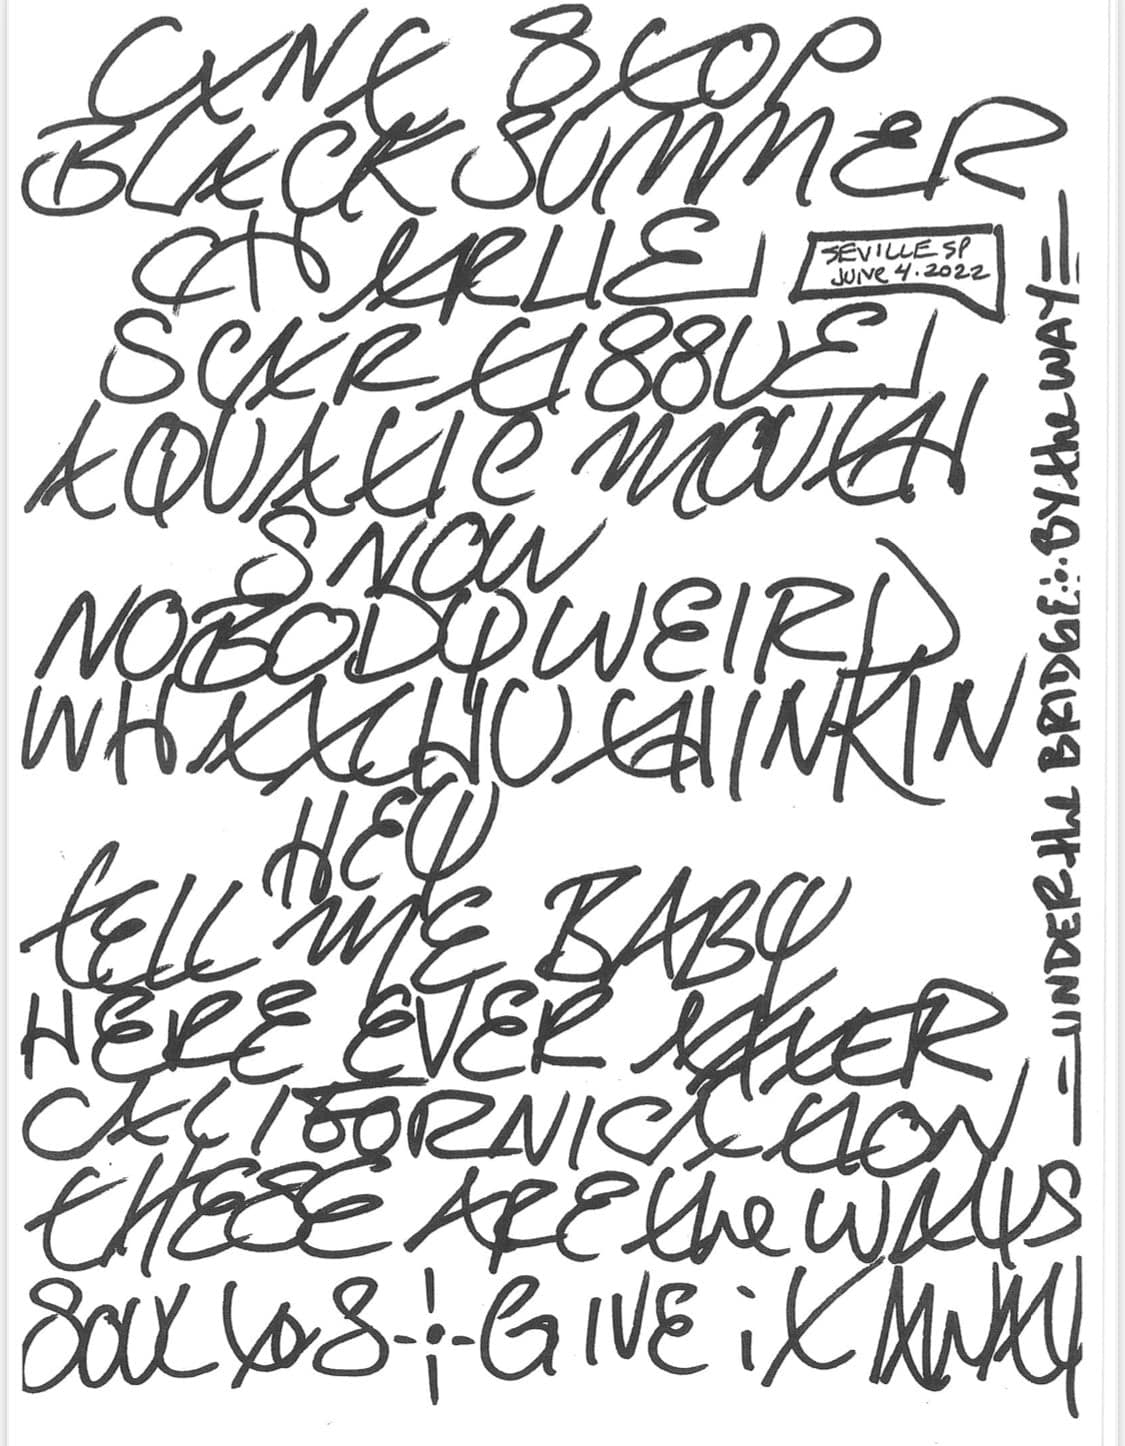 CAN'T STOP
BLACK SUMMER
CHARLIE
SEVILLE SP
JUNE 4.2022
SCAR TISSUE
AQUATIC MOUTH
SNOW
NOBODY WEIRD
WHATCHU THINKIN
HEY
TELL ME BABY
HERE EVER AFTER
CALIFORNICATION
THESE ARE the WAYS
SOUL TO S GIVE iT AWAY
UNDER the BRIDGE BY the WAY